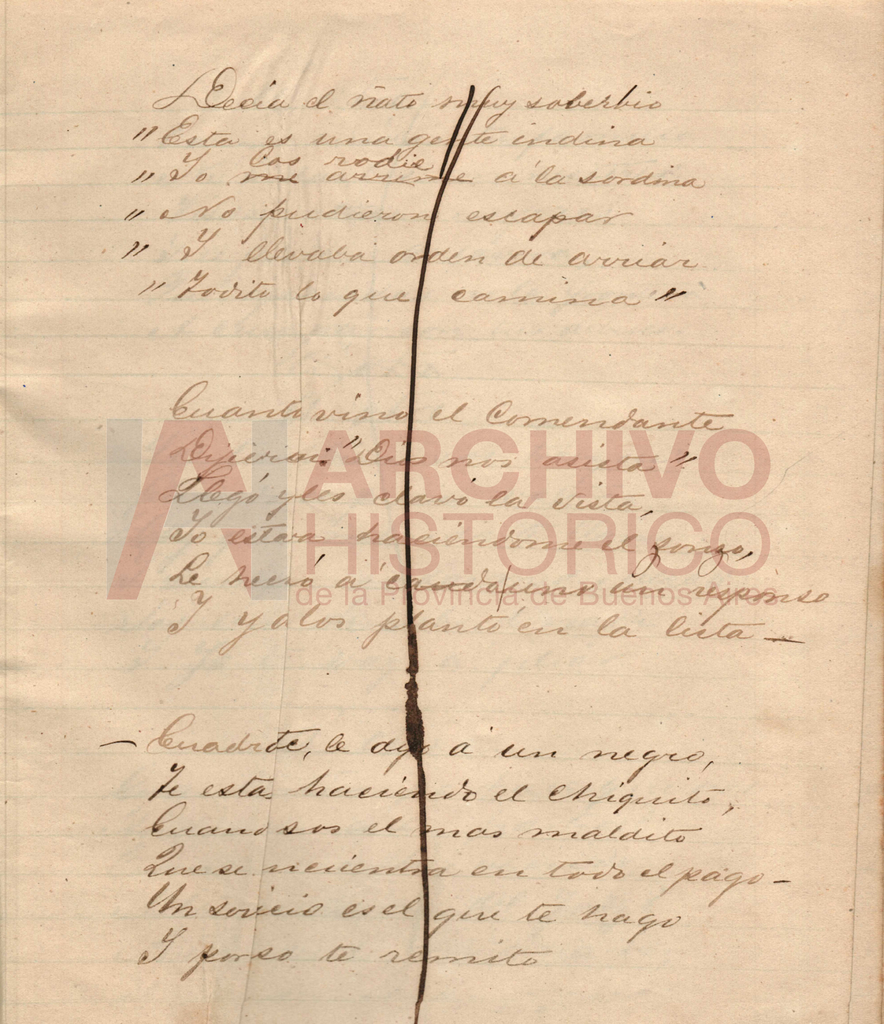 Decia el ñato muy soberbio
" Esta es una gente indina
los rodié
" Yo me arrime á la sordina
" No pudieron escapar
" Y llevaba orden de arriar
" Todito lo que camina "
Cuanto vino el Comendante
Dijieron: "Dios nos asista"
Llegó y les clavó la vista,
Yo estava haciendome el sonzo,
Le hechó á cauda uno un responso
Y ya los plantó en la lista —
— Cuadrate, le dijo á un negro,
Te estas haciendo el chiquito,
Cuando sos el mas maldito
Que se ncuentra en todo el pago —
Un sovicio es el que te hago
Y por so te remito
ARCHIVO
HISTORICO
de la Provincia de Buenos Aires